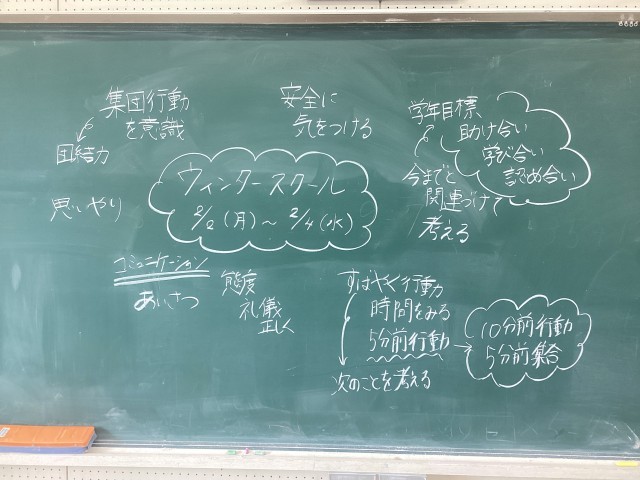 集団行動
を意識
団結力
思いやり
安全に
気をつける
学年目標
助け合い
学び合い
認め合い
今までと
関連づけて
考える
ウィンタースクール
2/2(月)~2/4(水)
コミュニケーション
あいさつ
態度
礼儀
正しく
すばやく行動
時間をみる
5分前行動
次のことを考える
10分前行動
5分前集合